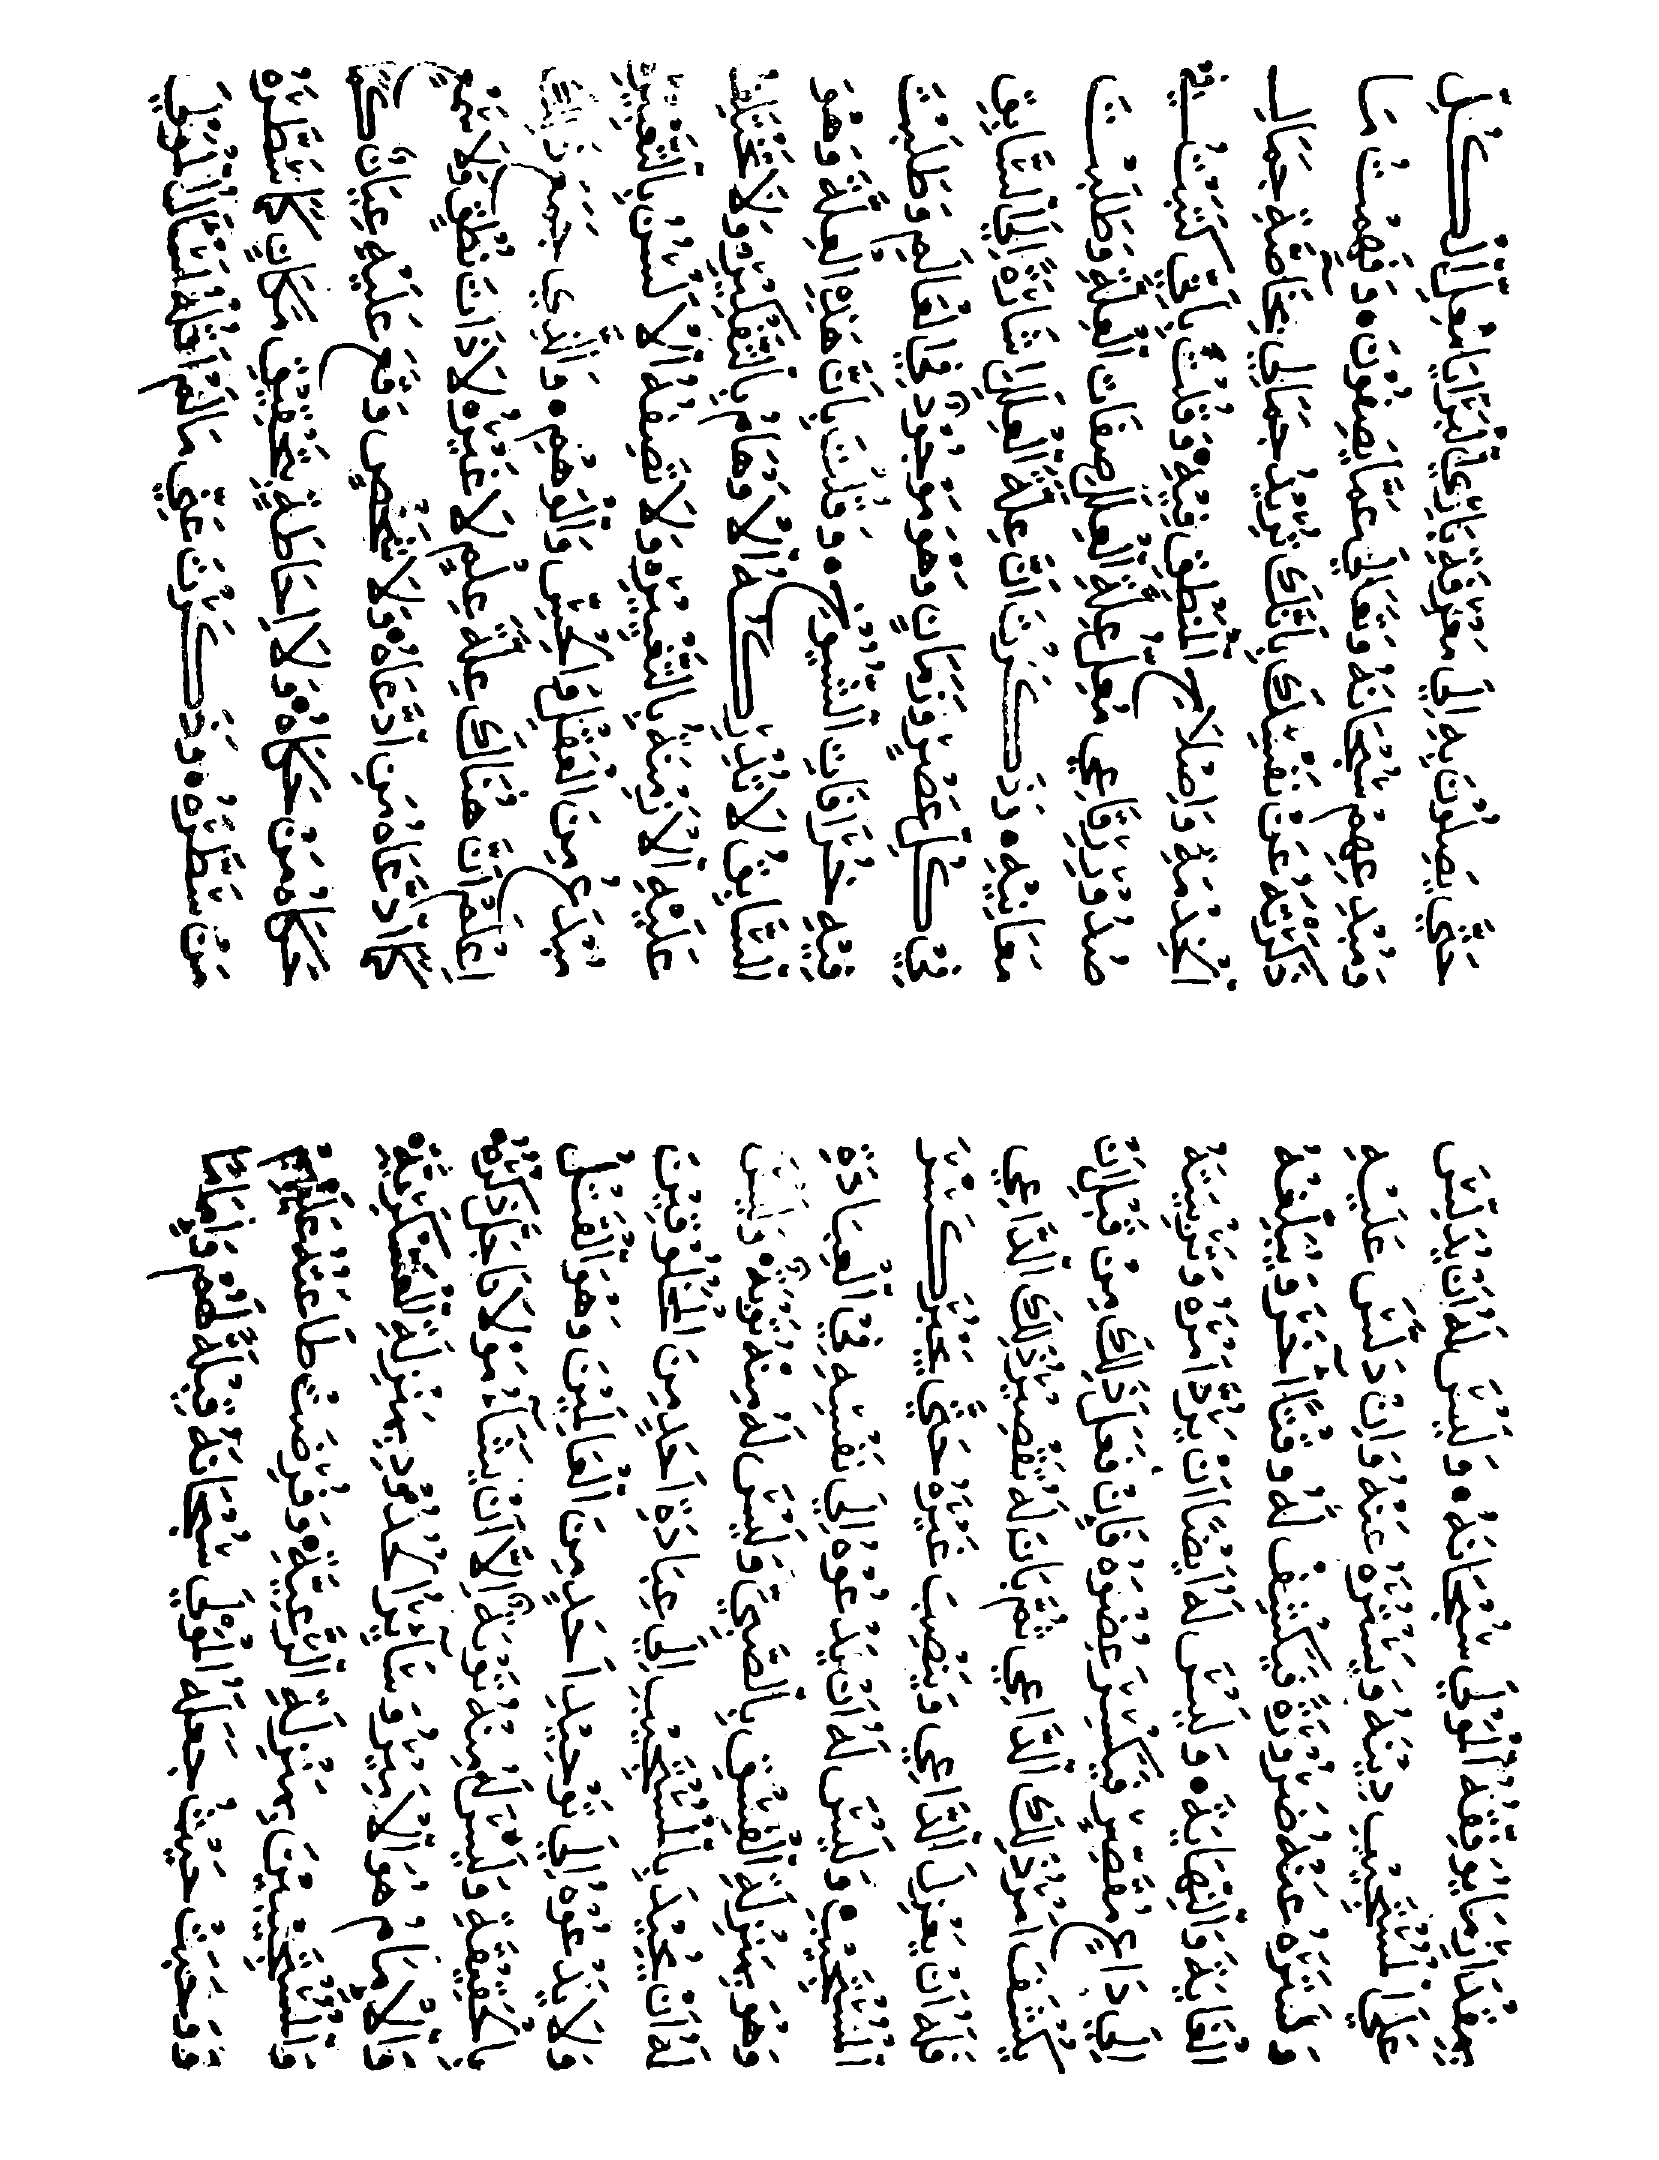 بِمِقْدَارِ مَا يُوَفِّقُهُ الْمَوْلَى سُبْحَانَهُ • وَلَيْسَ لَهُ اَنْ يُدَلِّسَ
عَلَى الْمُسْتَجِيبِ دِيْنَهُ وَيَسْتُرَهُ عَنْهُ وَاِنْ دَلَّسَ عَلَيْهِ
وَسَتَرَهُ عَنْهُ ضَرُورَةً فَيَكْشِفُ لَهُ وَقْتًا آخَرَ وَيُبَلِّغُهُ
الْغَايَةَ وَالنِّهَايَةَ • وَلَيْسَ لَهُ اَيْضًا اَنْ يَرُدَّ اَمْرَهُ وَتَرْبِيَتَهُ
اِلَى دَاعٍ مُقَصِّرٍ فَيَكْسِرَ عُضْوَهُ فَاِنْ فَعَلَ ذَلِكَ مِنْ قَبْلِ اَنْ
يَكْشِفَ اَمْرَ ذَلِكَ الدَّاعِي ثُمَّ بَانَ لَهُ تَقْصِيْرُ ذَلِكَ الدَّاعِي
فَلَهُ اَنْ يَعْزِلَ الدَّاعِي وَيَنْصِبَ غَيْرَهُ حَتَّى يَجْبُرَ كَسْرَ
الْمُسْتَجِيْبِ • وَلَيْسَ لَهُ اَنْ يَدْعُوَهُ اِلَى نَفْسِهِ فِي الْعِبَادَةِ
وَهُوَ بِمَنْزِلَةِ الْفِسْقِ بِالصَّبِيِّ وَلَيْسَ لَهُ مِنْهُ تَوْبَةٌ • وَلَيْسَ
لَهُ اَنْ يَحِيْدَ بِالْمُسْتَجِيْبِ اِلَى عِبَادَةِ اَحَدٍ مِنَ الْمَخْلُوْقِيْنَ
وَلَا يَدْعُوَهُ اِلَى تَوْحِيْدِ اَحَدٍ مِنَ الْعَالَمِيْنَ وَهُوَ الْقَتْلُ
بِالْحَقِيْقَةِ وَلَيْسَ لَهُ مِنْهُ تَوْبَةٌ اِلَّا اَنْ يَشَآءَ مَوْلَانَا جَلَّ ذِكْرُهُ •
وَالْاِمَامُ هُوَ الْاَمِيْرُ وَسَآيِرُ الْحُدُوْدِ بِمَنْزِلَةِ الْعَسْكَرِيَّةِ •
وَالْمُسْتَجِيْبِيْنَ بِمَنْزِلَةِ الرَّعِيَّةِ • وَفُرِضَتْ طَاعَتُهُ عَلَيْهِمْ
وَوَجَبَتْ حَيْثُ جَعَلَهُ الْمَوْلَى سُبْحَانَهُ قِبْلَةً لَهُمْ وَاِمَامًا
حَتَّى يَصِلُوْنَ بِهِ اِلَى مَعْرِفَةِ بَارِي الْبَرَايَا مُعِلِّ الْكُلِّ
وَمُبْدِعِهِمْ سُبْحَانَهُ وَتَعَالَى عَمَّا يَصِفُوْنَ • وَفَهِمْتُ مَا
ذَكَرْتَهُ عَنْ نَفْسِكَ بِاَنَّكَ تُرِيْدُ جَمَالِي بِخَآصَّةِ جَمَالِ
الْخِدْمَةِ وَاِصْلَاحِ الْمَنْطِقِ فِيْهِ • وَقُلْتَ بِاَنِّي كَتَبْتُ فِي
صُدُوْرِ رِقَاعِي مُعِلِّ عِلَّةِ الْعِلَلِ صِفَاتِ الْعِلَّةِ وَطَلَبْتَ
مَعَانِيْهِ • وَذَكَرْتَ اَنَّ عِلَّةَ الْعِلَلِ اِشَارَةً اِلَى السَّابِقِ
فِي كُلِّ عَصْرٍ وَزَمَانٍ وَهُوَ مَوْجُوْدٌ فِي الْعَالَمِ وَطَلَبْتَ
فِيْهِ خُرَافَاتِ الشُّيُوْخِ • وَقُلْتَ بِاَنَّ هَذِهِ الْعِلَّةَ وَهُوَ
السَّابِقُ لَا تُدْرِكُهُ الْاَوْهَامُ بِالتَّفْكِيْرِ وَلَا تَخْتَلِفُ
عَلَيْهِ الْاَزْمِنَةُ بِالتَّغْيِيْرِ وَلَا تَصِفُهُ الْاَلْسُنُ بِالتَّعْبِيْرِ
مُبْدَعٌ مِنَ الْعَقْلِ وَالْحِسِّ وَالْوَهْمِ • وَالَّذِي جَمَعَ ذَلِكَ
اِعْلَمْ اَنَّ هُنَاكَ عِلَّةُ عِلْمٍ لَا غَيْرُهُ لَا ذَاتَ نُطْقٍ وَلَا
كَمَا ادَّعَاهُ مَنِ ادَّعَاهُ • وَلَا شَخْصٍ وَقَعَ عَلَيْهِ عِيَانٌ كَمَا
حَكَاهُ مَنْ حَكَاهُ • وَلَا اِحَاطَةٍ بِتَحْقِيْقِ مَكَانٍ كَمَا سَطَّرَهُ
مَنْ سَطَّرَهُ • وَذَكَرْتَ عَنِّي مَا لَمْ اَقُلْهُ الْمَوْلَى